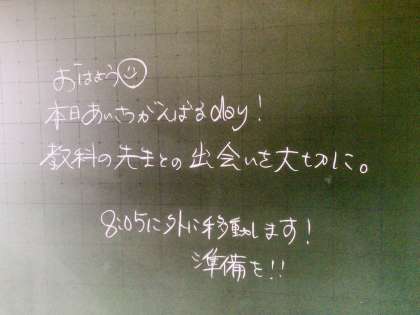 おはよう☺
本日あいさつがんばるday!
教科の先生との出会いを大切に。
8:05に外に移動します!
準備を!!